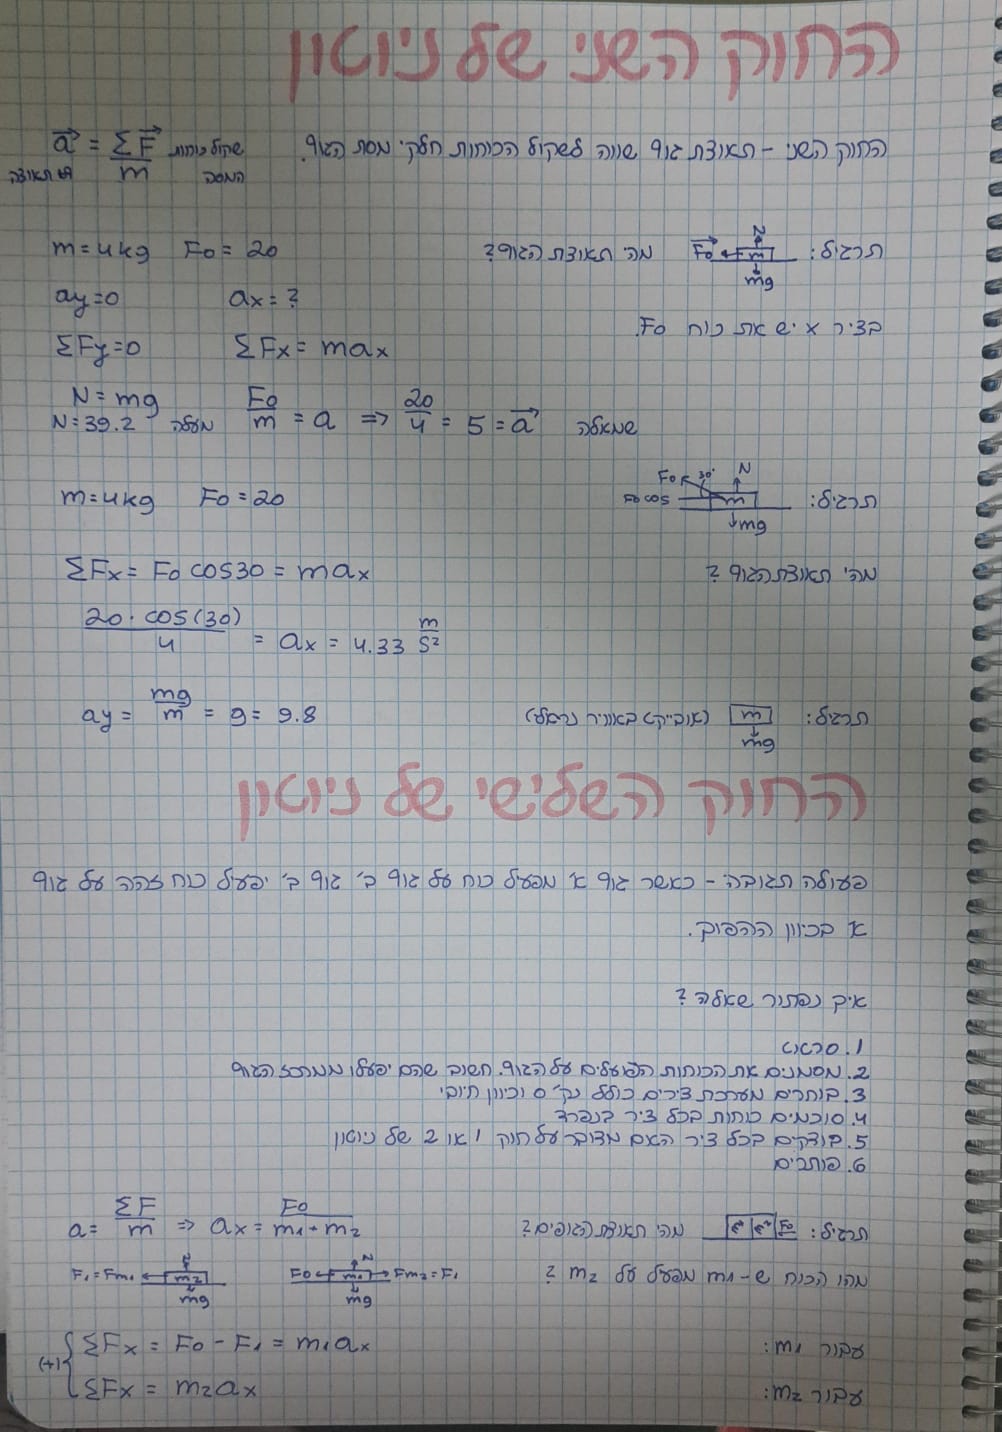 החוק השני של ניוטון
החוק השני - תאוצת גוף שווה לשקול הכוחות חלקי מסת הגוף. שקול כוחות a = ΣF/m
תאוצה המסה
תרגיל: N m F₀ mg מהי תאוצת הגוף? m=4kg F₀=20
ay=0 ax=?
בציר x יש את כוח F₀.
ΣFy=0 ΣFx=max
N=mg F₀/m = a ⇒ 20/4 = 5 = a שמאלה
N=39.2 מעלה
תרגיל: F₀ 30° N F₀cos m mg m=4kg F₀=20
מהי תאוצת הגוף? ΣFx = F₀ cos30 = max
20·cos(30)/4 = ax = 4.33 m/s²
תרגיל: m mg (אובייקט באוויר נופל) ay = mg/m = g = 9.8
החוק השלישי של ניוטון
פעולה תגובה - כאשר גוף א' מפעיל כוח על גוף ב' גוף ב' יפעיל כוח זהה על גוף
א בכיוון ההפוך.
איך נפתור שאלה?
1. סרטוט
2. מסמנים את הכוחות הפועלים על הגוף. חשוב שהם יפעלו ממרכז הגוף
3. בוחרים מערכת צירים כולל נק' 0 וכיוון חיובי
4. סוכמים כוחות בכל ציר בנפרד
5. בודקים בכל ציר האם מדובר על חוק 1 או 2 של ניוטון
6. פותרים
תרגיל: F₀ מהי תאוצת הגופים? a = ΣF/m ⇒ ax = F₀/m₁+m₂
מהו הכוח ש-m₁ מפעיל על m₂? F₀ N m₁ mg Fm₂=F₁ F₁=Fm₁ N m₂ mg
עבור m₁: ΣFx = F₀ - F₁ = m₁ax
(+)
עבור m₂: ΣFx = m₂ax